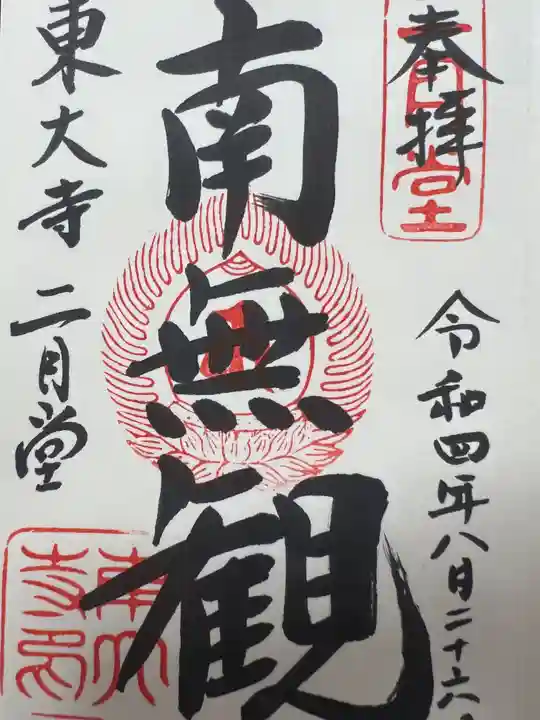 奉拝
令和四年八月二十六日
南無観
東大寺 二月堂